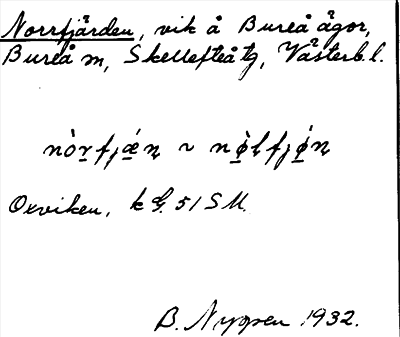 Norrfjärden, vik å Bureå ägor,
Bureå sn, Skellefteå tg, Västerb. l.
nòrfjǽn ~ nø̀lfjǿn
Oxviken, k G. 51 SV.
B. Nygren 1932.